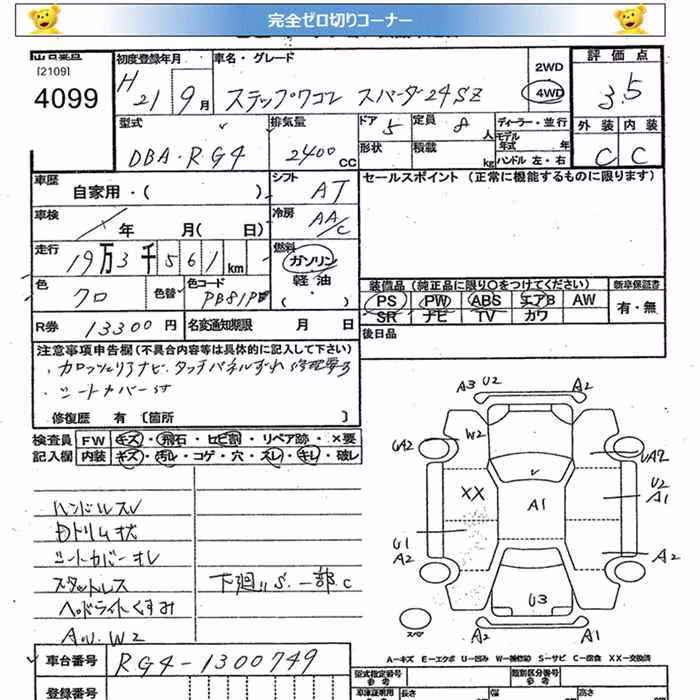 完全ゼロ切りコーナー
[2109]
4099
初度登録年月
H 21 9月
車名・グレード
ステップワゴン スパーダ24SZ
2WD
4WD
評価点
3.5
型式
DBA・RG4
排気量
2400 CC
ドア 5
定員 8 人
形状
積載 kg
ディーラー・並行
モデル年式 年
ハンドル 左・右
外装 内装
C C
車歴
自家用・( )
シフト
AT
セールスポイント (正常に機能するものに限ります)
車検
年 月( 日)
冷房
AA/C
走行
19万3千561km
燃料
ガソリン
軽油
( ・ )
色
クロ
色替
色コード
PB81P
装備品 (純正品に限り〇をつけてください)
新車保証書
PS PW ABS エアB AW
有・無
SR ナビ TV カワ
R券 13300円
名変通知期限 月 日
後日品
注意事項申告欄(不具合内容等は具体的に記入して下さい)
・カロッツェリアナビ タッチパネルずれ 修理要す
・シートカバー付
・修復歴 有 〔箇所 〕
検査員記入欄
FW キズ・飛石・ヒビ割・リペア跡・×要
内装 キズ・汚レ・コゲ・穴・スレ・キレ・破レ
ハンドルスレ
内トリム状
シートカバーオレ
スタットレス
下廻りS.一部C
ヘッドライトくすみ
A/W W2
A3 U2 A2
W2
UA2 UA2
XX
A1
U2
A1
U1
A2 A2
U3
スペア
A2 A1
A-キズ E-エクボ U-凹み W-補修跡 S-サビ C-腐食 XX-交換済
車台番号
RG4-1300749
登録番号
型式指定番号
参考
類別区分番号
参考
車庫証明用
長さ
幅
高さ